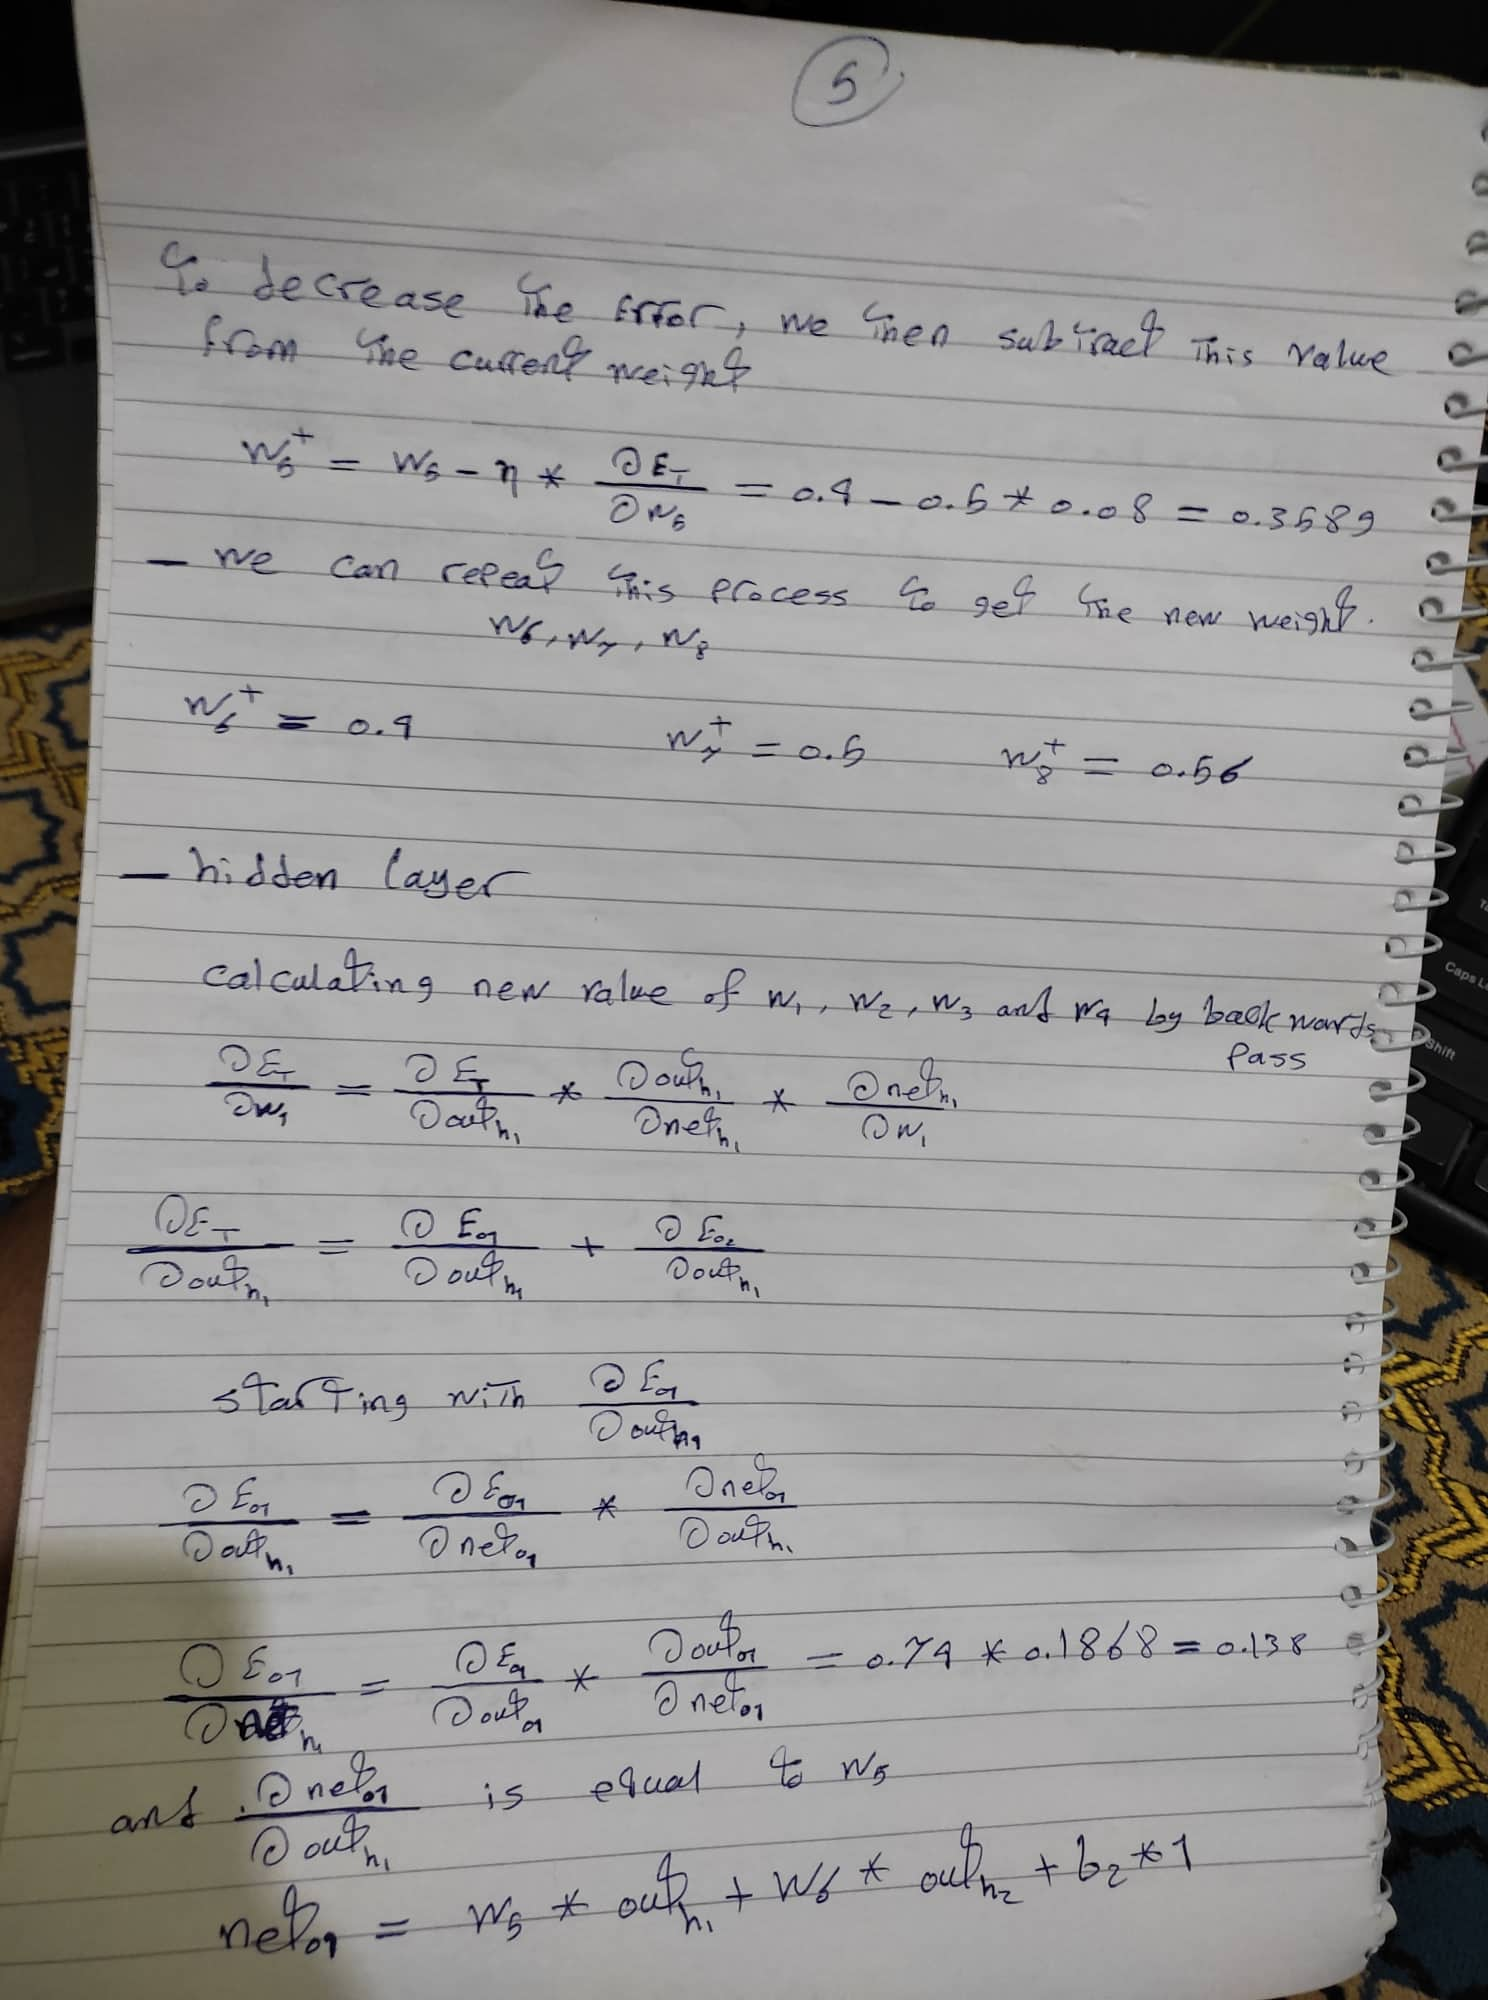 5
To decrease the Error, we then subtract This value
from the current weight
W5+ = W5 - η * ∂ET/∂W5 = 0.4 - 0.5 * 0.08 = 0.3589
- we can repeat this process to get the new weight.
W6, W7, W8
W6+ = 0.4 W7+ = 0.5 W8+ = 0.56
- hidden layer
calculating new value of W1, W2, W3 and W4 by backwards
Pass
∂ET/∂W1 = ∂ET/∂outh1 * ∂outh1/∂neth1 * ∂neth1/∂W1
∂ET/∂outh1 = ∂Eo1/∂outh1 + ∂Eo2/∂outh1
starting with ∂Eo1/∂outh1
∂Eo1/∂outh1 = ∂Eo1/∂neto1 * ∂neto1/∂outh1
∂Eo1/∂neth1 = ∂Eo1/∂outo1 * ∂outo1/∂neto1 = 0.74 * 0.1868 = 0.138
and ∂neto1/∂outh1 is equal to W5
neto1 = W5 * outh1 + W6 * outh2 + b2 * 1